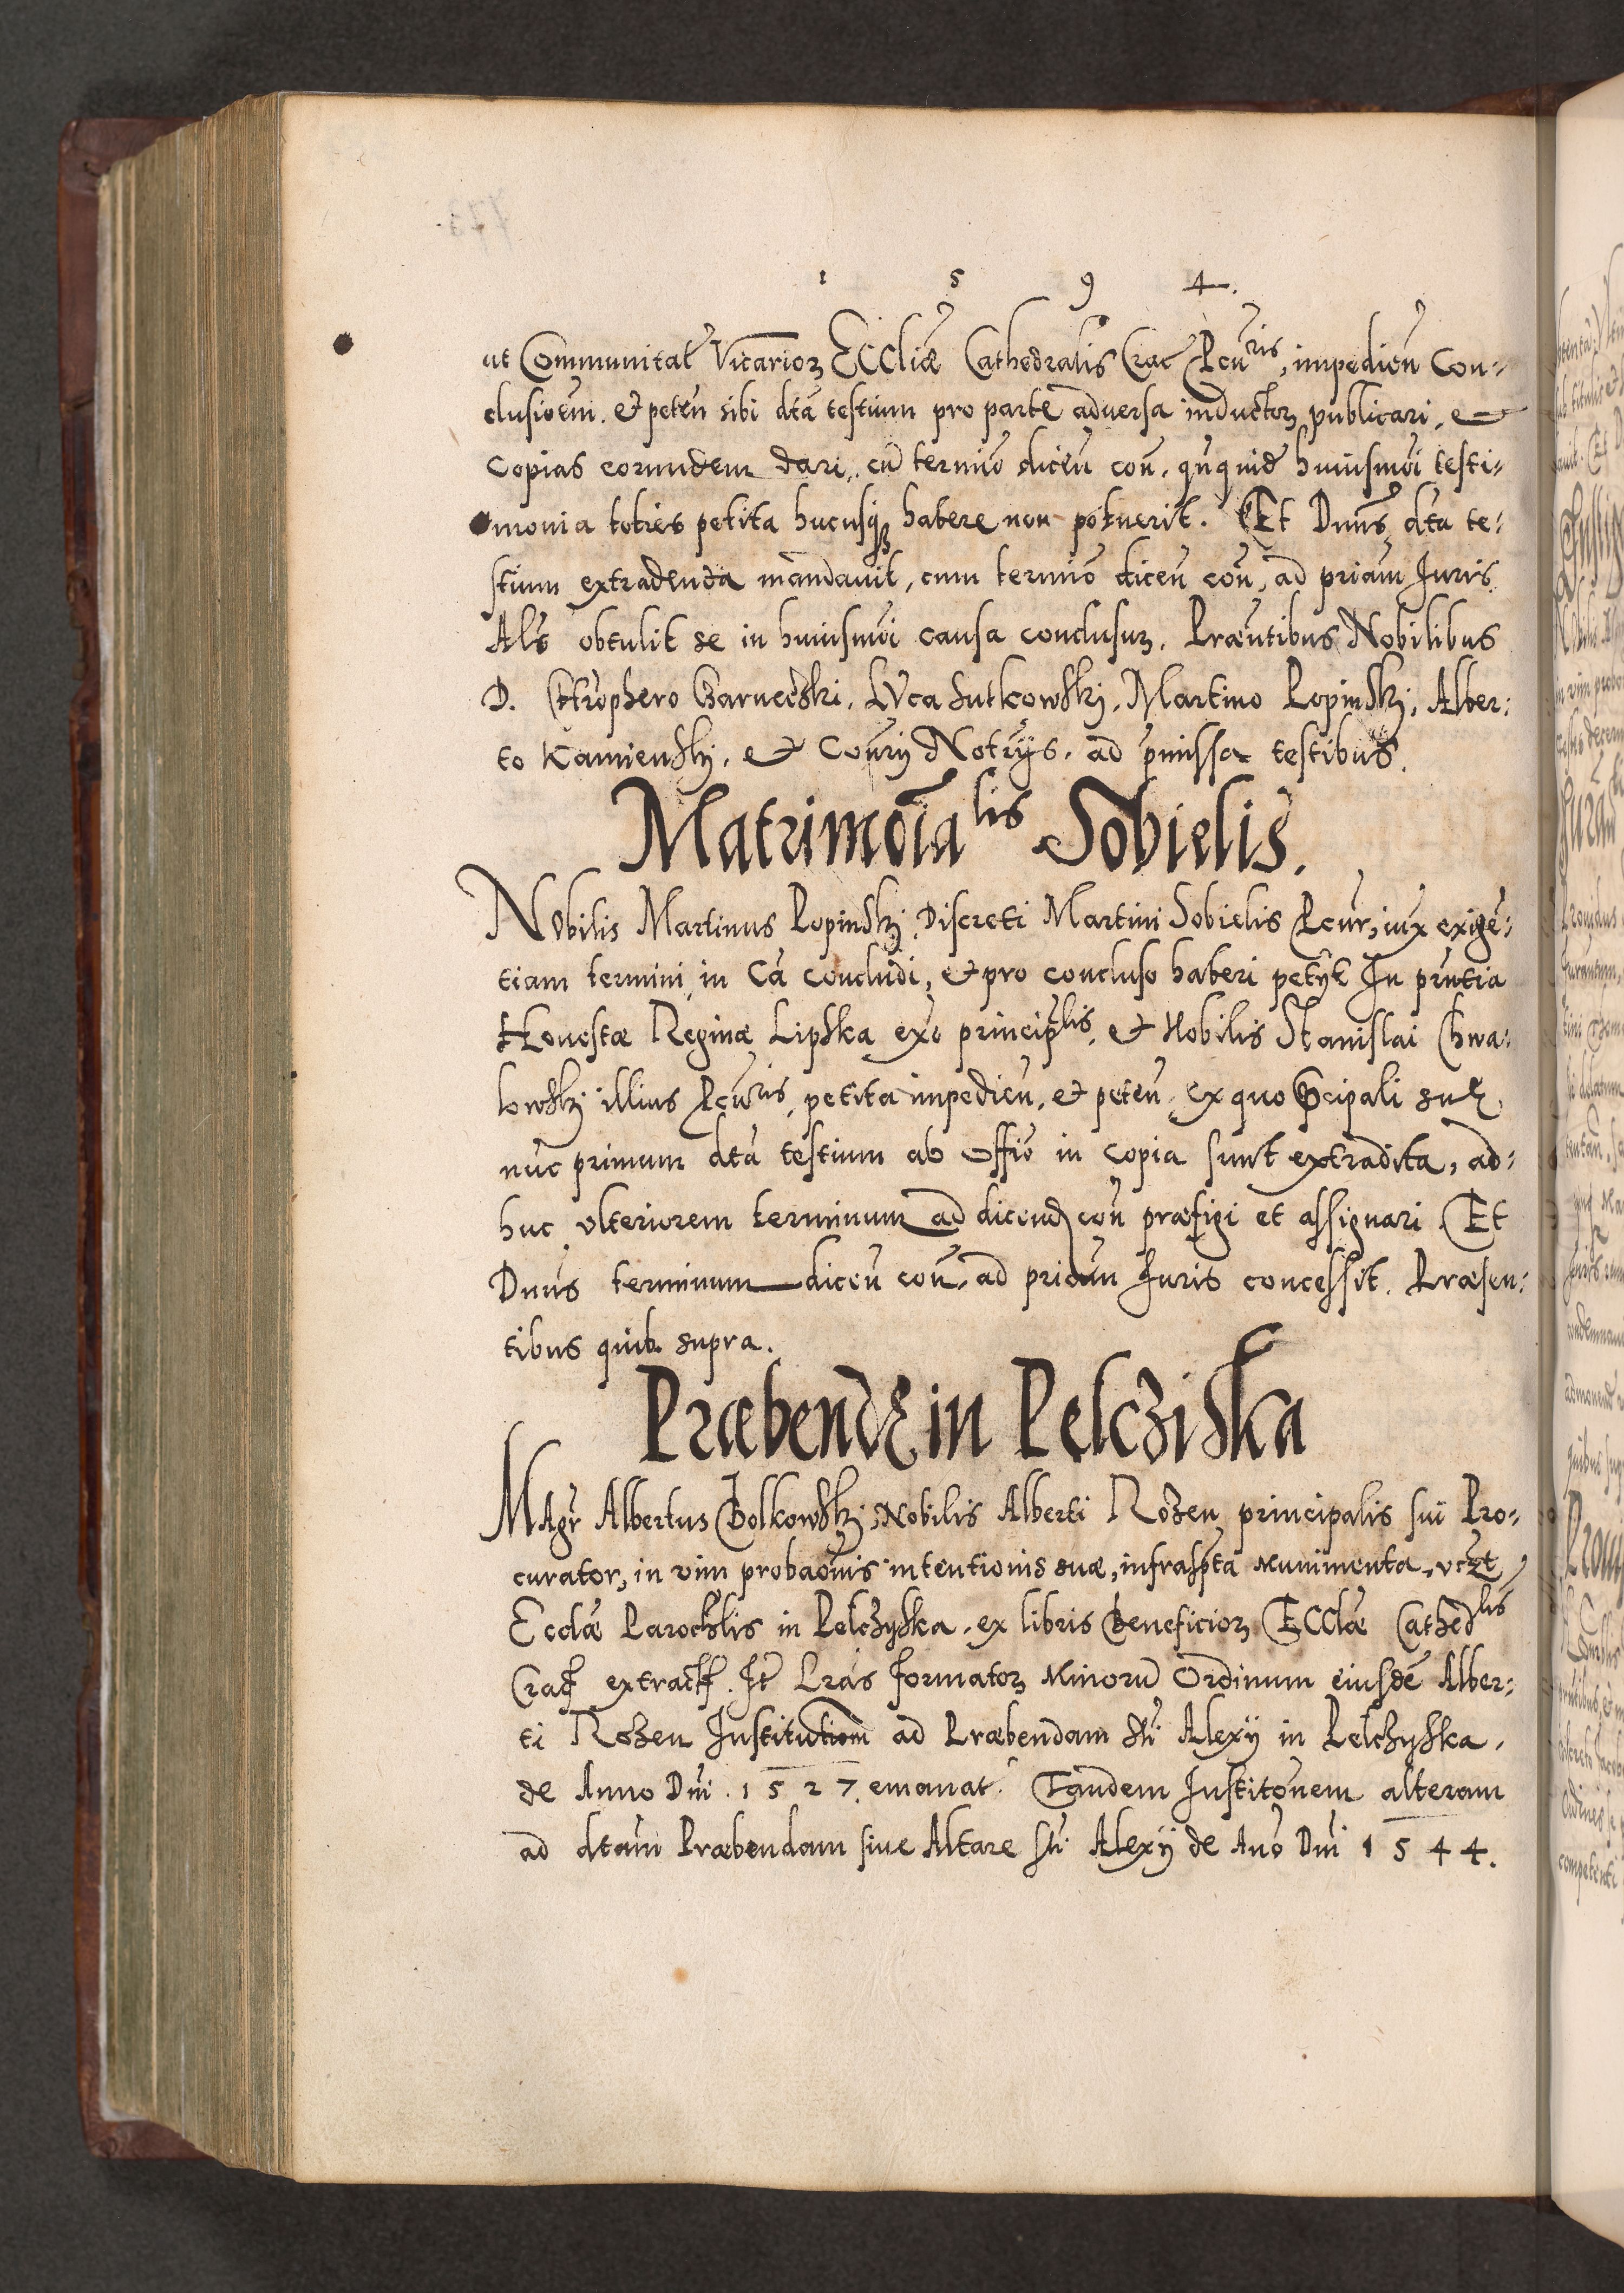 1 5 9 4.
ut Communitat̃ Vicarioꝝ Eccliæ Cathedralis Crac̃ Pcũris, impedieñ Con-
clusioem̃. et peteñ sibi dcta testium pro parte adversa inductoꝝ publicari, et
Copias eorundem dari, cũ termiõ diceñ coñ. qñquidẽ huiusmõi testi-
monia toties petita hucusqꝫ habere non potuerit. Et Dnũs dcta te-
stium extradenda mandavit, cum termiõ diceñ coñ, ad priam̃ Juris.
Als̃ obtulit se in huiusmõi causa conclusuꝝ. Præñtibus Nobilibus
D. Chr̃ophero Czarnecski, Lvca Sutkowskj, Martino Lopinskj, Alber-
to Kamienskj, et Coñrij Notr̃ijs, ad p̃missa testibus.
Matrimõialis Sobielis.
Nobilis Martinus Lopinskj, Discreti Martini Sobielis Pcur̃, iux exigẽ-
tiam termini in Cã concludi, et pro concluso haberi petijt In pr̃ntia
Honestæ Reginæ Lipska ex̃o principlis, et Nobilis Stanislai Chwa-
lowskj illius Pcũris, petita impedieñ, et peteñ, ex quo p̃cipali suæ
nũc primum dcta testium ab Offiõ in copia sunt extradita, ad-
huc ulteriorem terminum ad dicend̃ coñ præfigi et assignari. Et
Dnũs terminum diceñ coñ, ad priam̃ Juris concessit. Præsen-
tibus quib. supra.
Præbendæ in Pelcziska
Magr̃ Albertus Bolkowskj, Nobilis Alberti Rozen principalis sui Pro-
curator, in vim probaõnis intentionis suæ, infrasp̃ta munimenta, vczt
Eccl̃æ Parochlis in Pelczyska, ex libris Beneficioꝝ Eccl̃æ Cathedlis
Crac̃ extract̃. It̃ Lr̃as formatoꝝ Minorũ Ordinum eiusdẽ Alber-
ti Rozen Institutiom̃ ad Præbendam Sti Alexij in Pelczyska,
de Anno Dñi 1527. emanat̃. Tandem Institõnem alteram
ad dctam Præbendam sive Altare Sti Alexij de Añõ Dñi 1544.